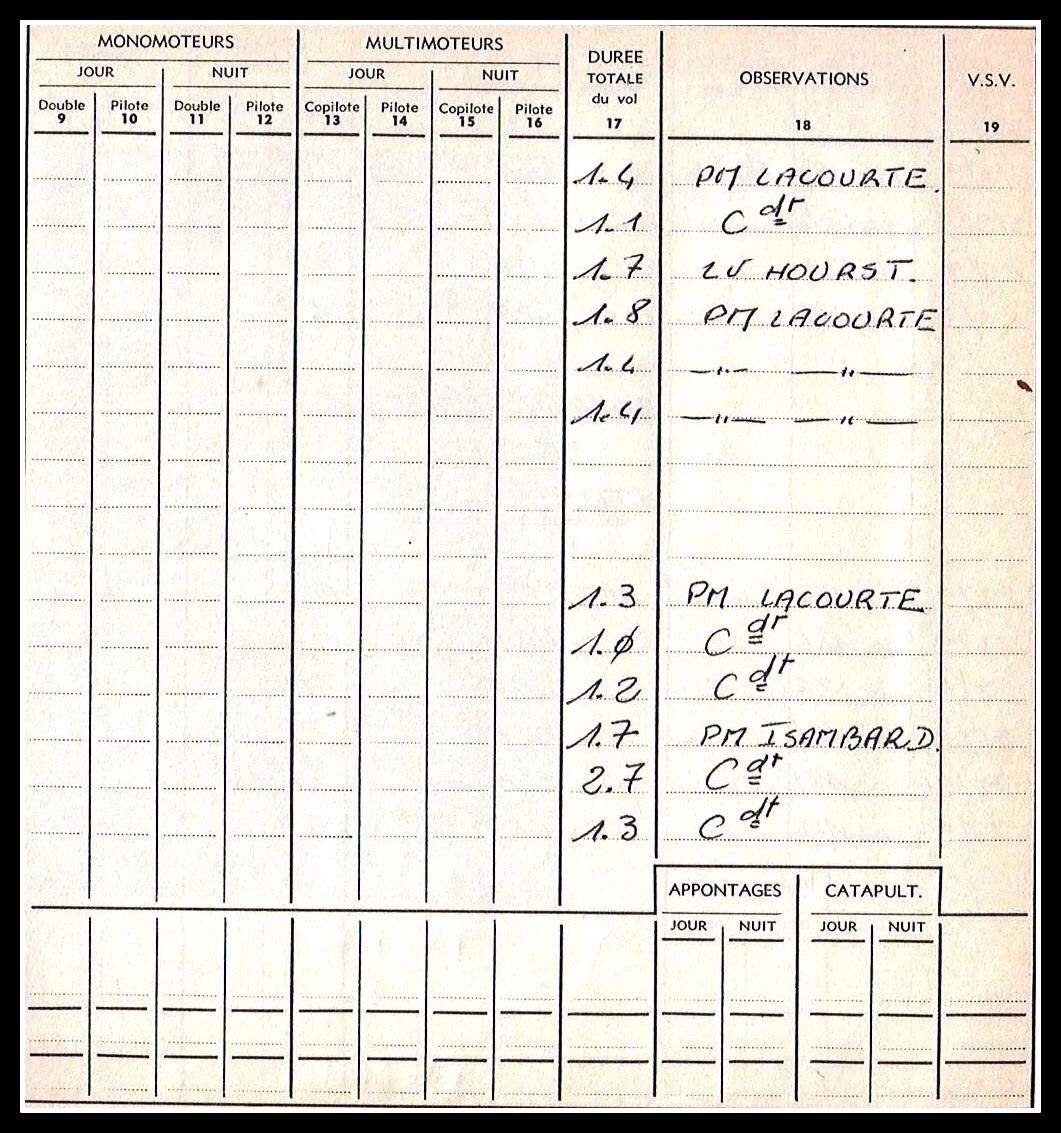 MONOMOTEURS MULTIMOTEURS DUREE TOTALE du vol OBSERVATIONS V.S.V.
JOUR NUIT JOUR NUIT
Double Pilote Double Pilote Copilote Pilote Copilote Pilote
9 10 11 12 13 14 15 16 17 18 19
1.4 PM LACOURTE.
1.1 C dt
1.7 LV HOURST.
1.8 PM LACOURTE
1.4 —"— —"—
1.4 —"— —"—
1.3 PM LACOURTE
1.ø C dt
1.2 C dt
1.7 PM ISAMBARD.
2.7 C dt
1.3 C dt
APPONTAGES CATAPULT.
JOUR NUIT JOUR NUIT